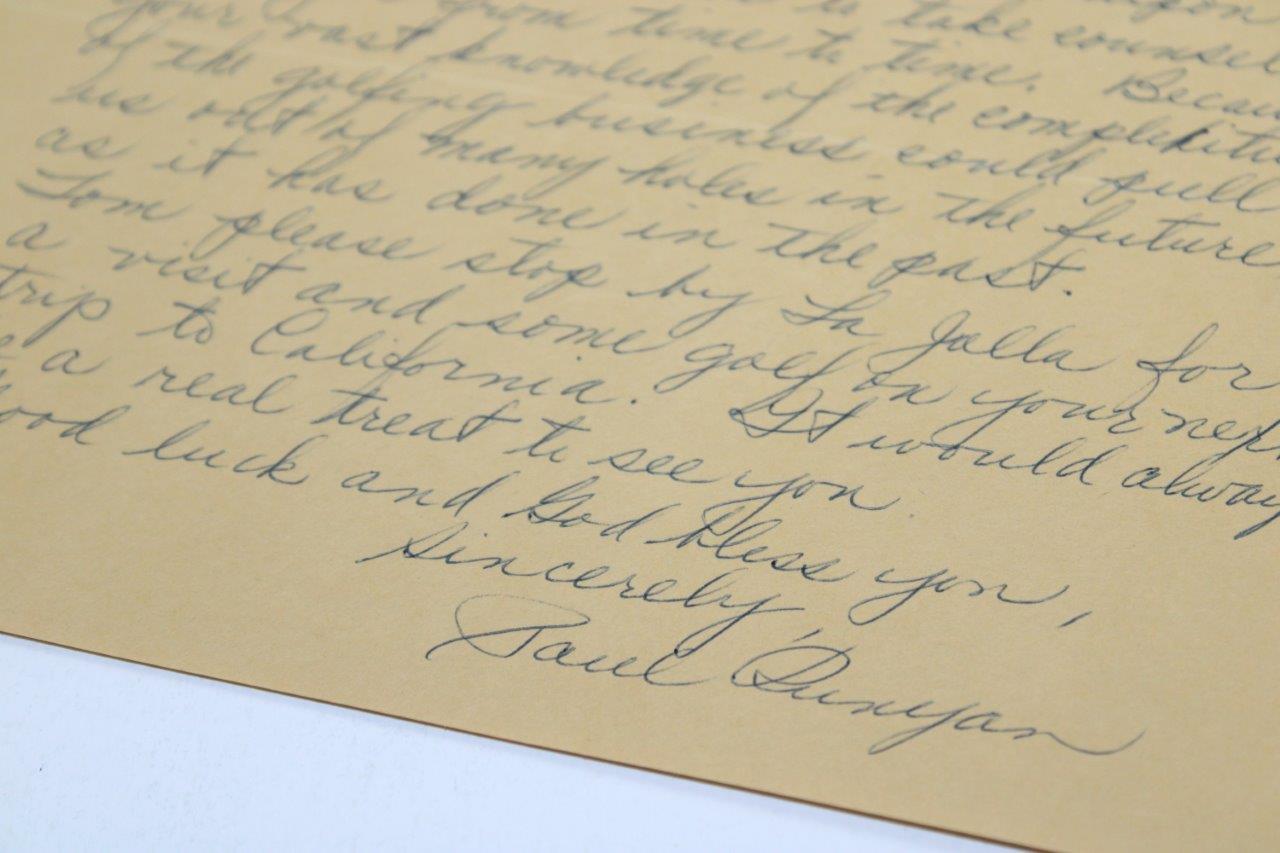 upon
your from time to time to take counsel
vast knowledge of the complexitie
of the golfing business could pull
us out of many holes in the future
as it has done in the past.
Tom please stop by La Jolla for
a visit and some golf on your nex
trip to California. It would alway
a real treat to see you.
ood luck and God bless you,
Sincerely
Paul Runyan